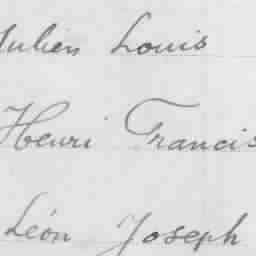 Julien Louis
Henri Francis
Léon Joseph